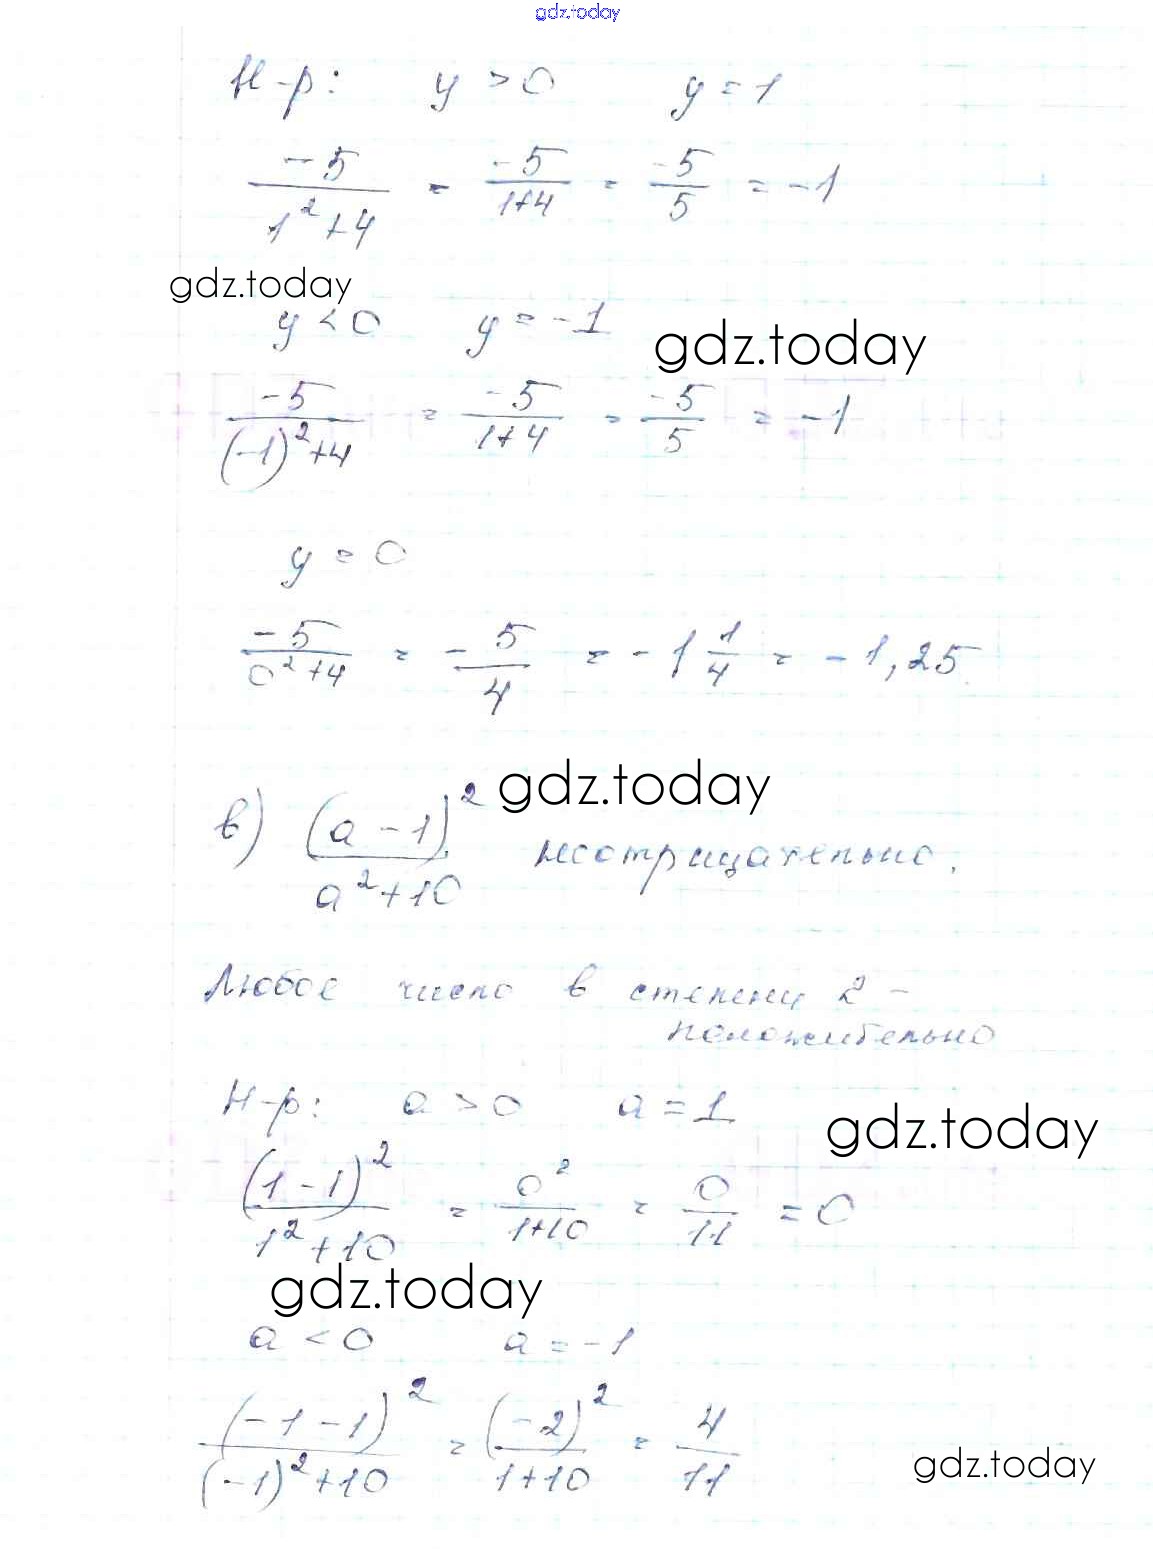 gdz.today
Н-р: y > 0 y = 1
-5/(1²+4) = -5/(1+4) = -5/5 = -1
gdz.today
y < 0 y = -1
gdz.today
-5/((-1)²+4) = -5/(1+4) = -5/5 = -1
y = 0
-5/(0²+4) = -5/4 = -1 1/4 = -1,25
gdz.today
в) (a-1)²/(a²+10) неотрицательно.
Любое число в степени 2 -
положительно
Н-р: a > 0 a = 1
gdz.today
(1-1)²/(1²+10) = 0²/(1+10) = 0/11 = 0
gdz.today
a < 0 a = -1
(-1-1)²/((-1)²+10) = (-2)²/(1+10) = 4/11
gdz.today